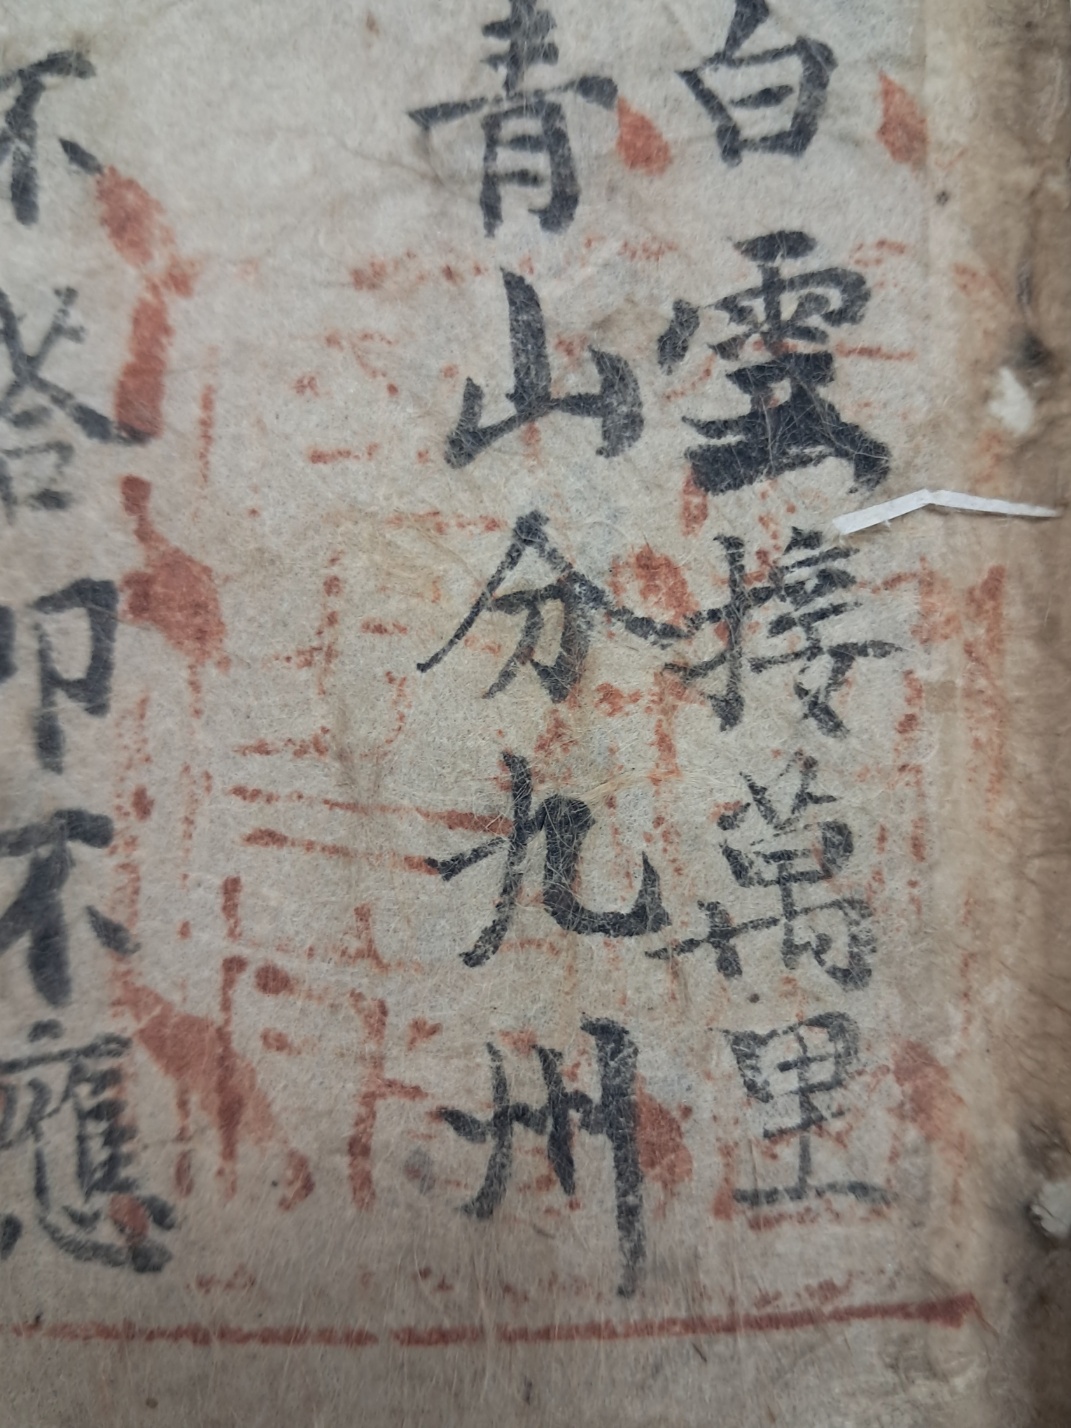 白雲接萬里
青山分九州
不答叩不應